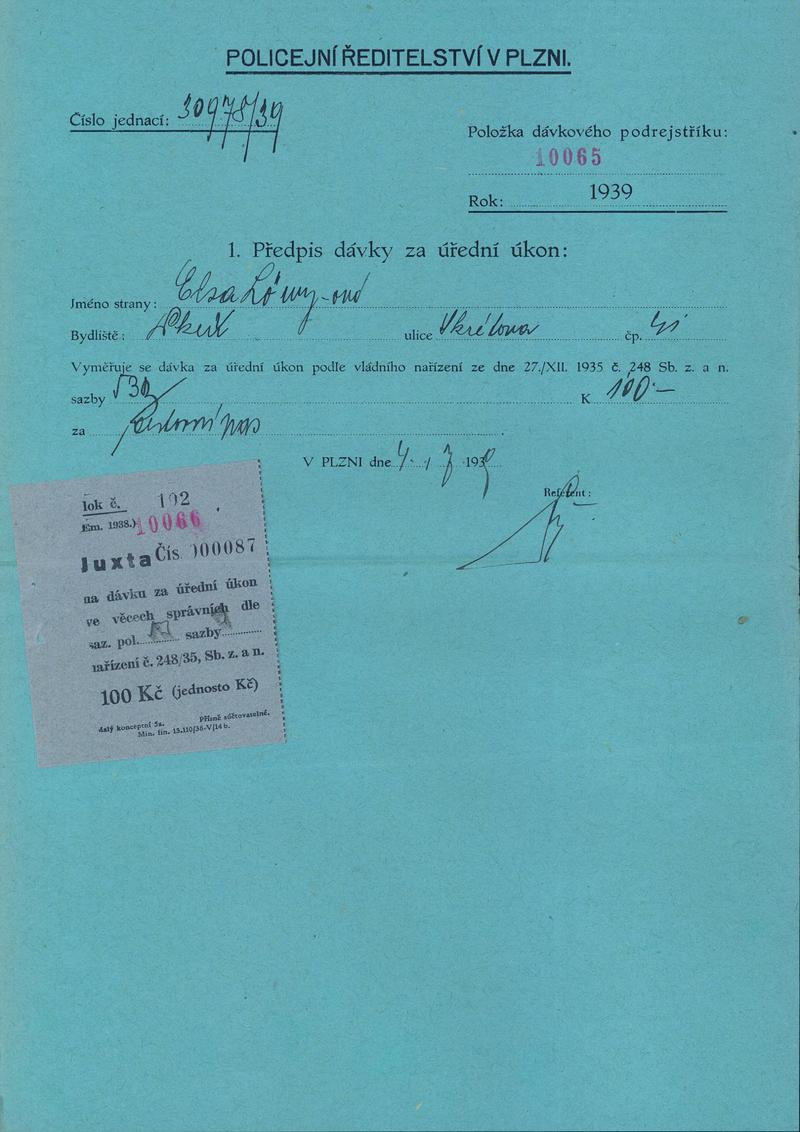 POLICEJNÍ ŘEDITELSTVÍ V PLZNI.
Číslo jednací: 30978/39
Položka dávkového podrejstříku:
10065
Rok: 1939
1. Předpis dávky za úřední úkon:
Jméno strany: Elsa Löwy-ová
Bydliště: ulice Škrétova čp.
Vyměřuje se dávka za úřední úkon podle vládního nařízení ze dne 27./XII. 1935 č. 248 Sb. z. a n.
sazby K 100·—
za cestovní pas
V PLZNI dne 4. / 7 1939
Referent:
lok č. 102
Em. 1938.) 10066
Juxta Čís 000087
na dávku za úřední úkon
ve věcech správních dle
saz. pol. sazby
nařízení č. 248/35, Sb. z. a n.
100 Kč (jednosto Kč)
dalý konceptní 5a. Přísně súčtovatelné.
Min. fin. 15.110/38-V/14 b.